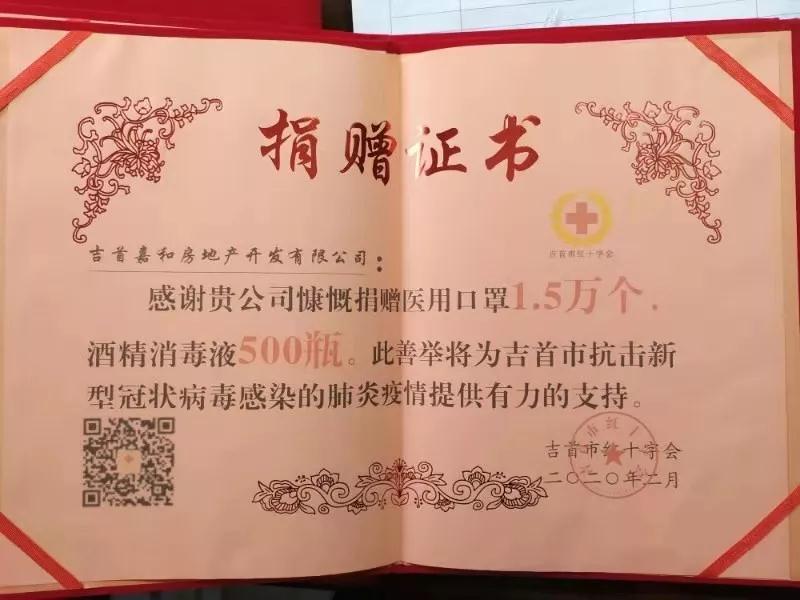 捐赠证书
吉首市红十字会
吉首嘉和房地产开发有限公司：
感谢贵公司慷慨捐赠医用口罩1.5万个．
酒精消毒液500瓶。此善举将为吉首市抗击新
型冠状病毒感染的肺炎疫情提供有力的支持。
吉首市红十字会
二〇二〇年二月